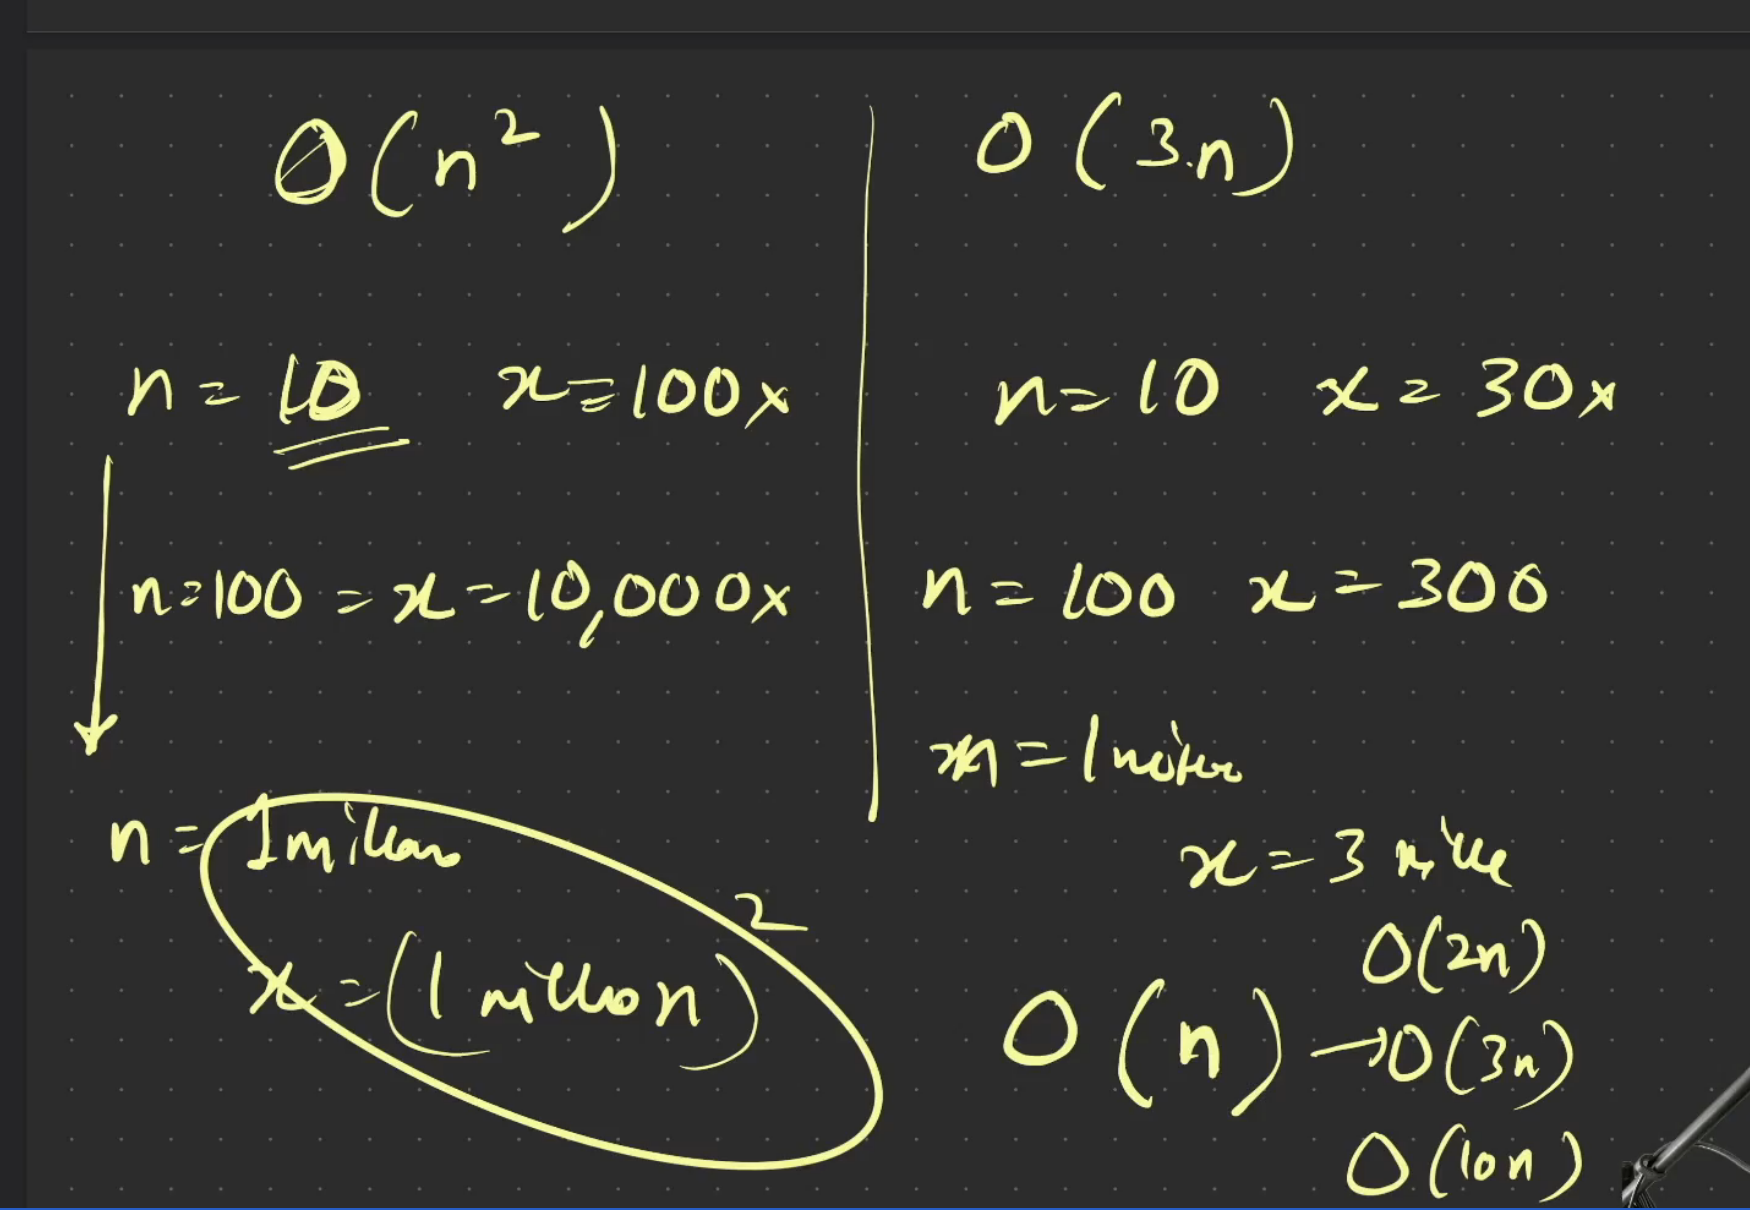 O(n²)
n = 10 x = 100x
n=100 = x = 10,000x
n = 1 million
x = (1 million)²
O(3.n)
n = 10 x = 30x
n = 100 x = 300
n = 1
x = 3
O(2n)
O(n) → O(3n)
O(10n)